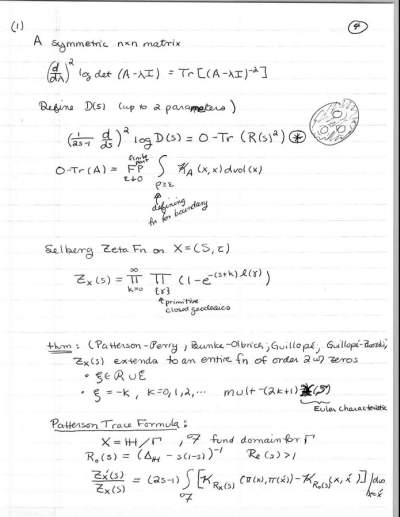 (1) 4
A symmetric n×n matrix
(d/dλ)² log det (A-λI) = Tr[(A-λI)⁻²]
Define D(s) (up to 2 parameters)
(1/(2s-1) d/ds)² log D(s) = 0-Tr (R(s)²) ⊛
0-Tr(A) = FP ∫ K_A (x,x) dvol(x)
finite part
ε↓0
ρ≥ε
defining
fn for boundary
Selberg Zeta Fn on X = (S, τ)
Z_X(s) = ∞∏k=0 ∏{γ} (1-e^{-(s+k) ℓ(γ)})
primitive
closed geodesics
thm: (Patterson-Perry, Bunke-Olbrich, Guillopé, Guillopé-Zworski)
Z_X(s) extends to an entire fn of order 2 w/ zeros
• ξ ∈ R ∪ E
• ξ = -k, k=0,1,2,... mult -(2k+1)
Euler characteristic
Patterson Trace Formula:
X = H/Γ, F fund domain for Γ
R₀(s) = (Δ_H - s(1-s))⁻¹ Re(s)>1
Z'_X(s)/Z_X(s) = (2s-1) ∫_F [K_{R_X(s)} (π(x), π(x́)) - K_{R₀(s)} (x, x́)]